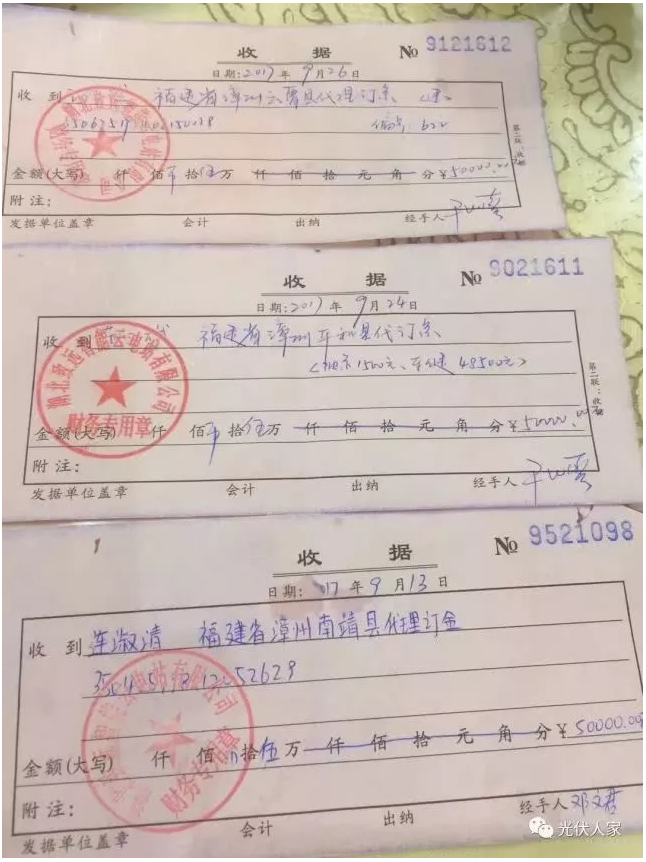 收 据 № 9121612
日期:2017年9月26日
收到 福建省漳州云霄县代理订金
金额(大写) 仟 佰 拾伍万 仟 佰 拾 元 角 分 ¥50000.00
附注:
发据单位盖章 会计 出纳 经手人
第二联:收据
收 据 № 9021611
日期:2017年9月24日
收到 福建省漳州平和县代订金
1500元、 48500元)
湖北致远智能云电站有限公司
财务专用章
金额(大写) 仟 佰 拾伍万 仟 佰 拾 元 角 分 ¥50000.00
附注:
发据单位盖章 会计 出纳 经手人
第二联:收据
收 据 № 9521098
日期: 17年9月13日
收到 连淑清 福建省漳州南靖县代理订金
云电站有限公司
财务专用章
金额(大写) 仟 佰 拾伍万 仟 佰 拾 元 角 分 ¥50000.00
附注:
经手人 邓文君
发据单位盖章 会计 出纳
光伏人家